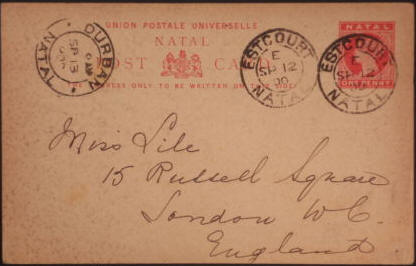 UNION POSTALE UNIVERSELLE
NATAL
POST CARD
THE ADDRESS ONLY TO BE WRITTEN ON THIS SIDE
DURBAN
SP 13
NATAL
ESTCOURT
E
SP 12
00
NATAL
ESTCOURT
E
SP 12
NATAL
NATAL
ONE PENNY
Miss Lile
15 Russell Square
London W.C.
England